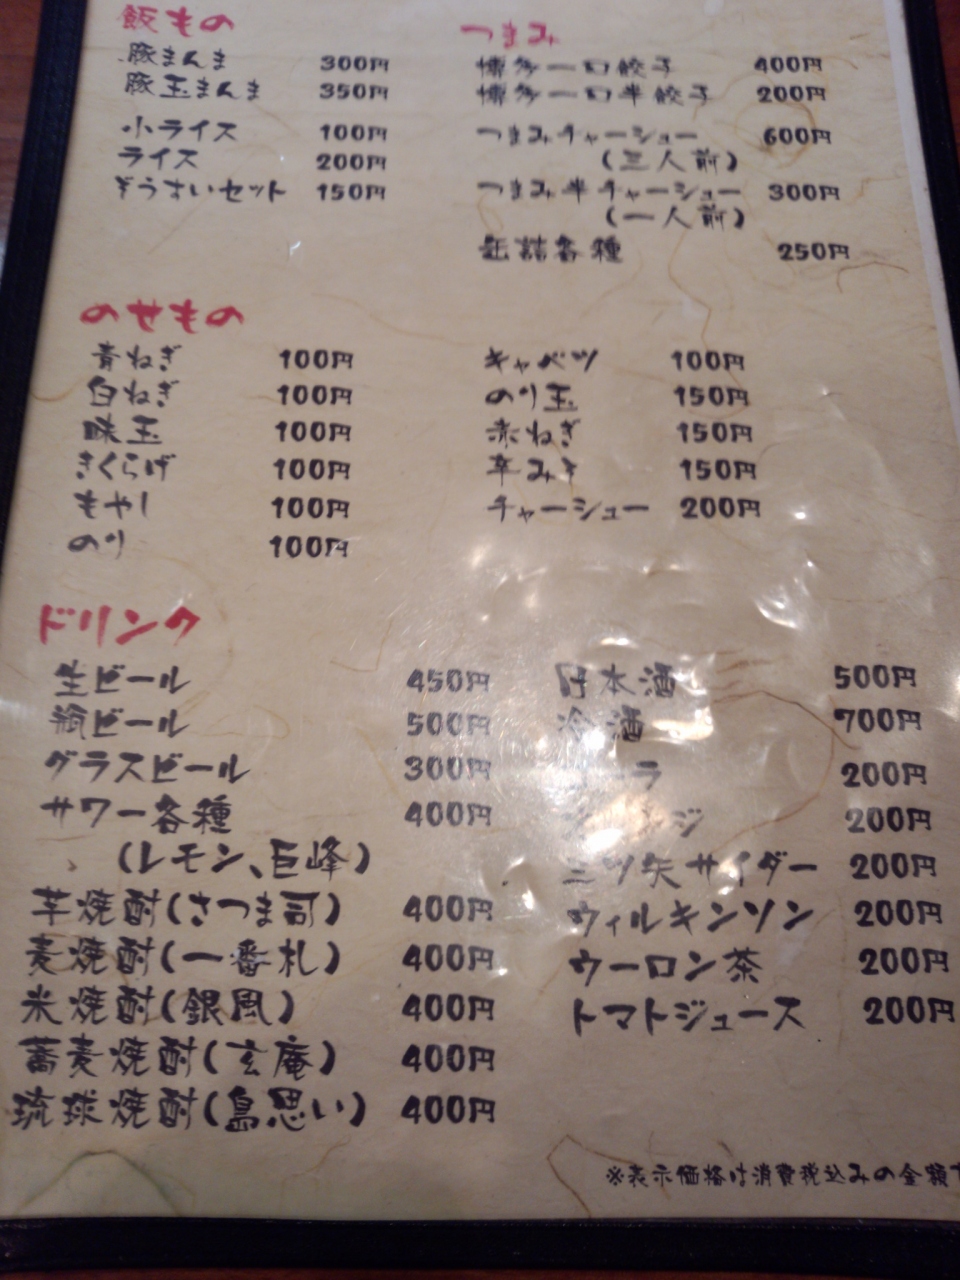 飯もの
豚まんま 300円
豚玉まんま 350円
小ライス 100円
ライス 200円
ぞうすいセット 150円
つまみ
博多一口餃子 400円
博多一口半餃子 200円
つまみチャーシュー 600円
(三人前)
つまみ半チャーシュー 300円
(一人前)
缶詰各種 250円
のせもの
青ねぎ 100円
白ねぎ 100円
味玉 100円
きくらげ 100円
もやし 100円
のり 100円
キャベツ 100円
のり玉 150円
赤ねぎ 150円
辛みそ 150円
チャーシュー 200円
ドリンク
生ビール 450円
瓶ビール 500円
グラスビール 300円
サワー各種 400円
(レモン、巨峰)
芋焼酎(さつま司) 400円
麦焼酎(一番札) 400円
米焼酎(銀風) 400円
蕎麦焼酎(玄庵) 400円
琉球焼酎(島思い) 400円
日本酒 500円
冷酒 700円
コーラ 200円
200円
三ツ矢サイダー 200円
ウィルキンソン 200円
ウーロン茶 200円
トマトジュース 200円
※表示価格は消費税込みの金額